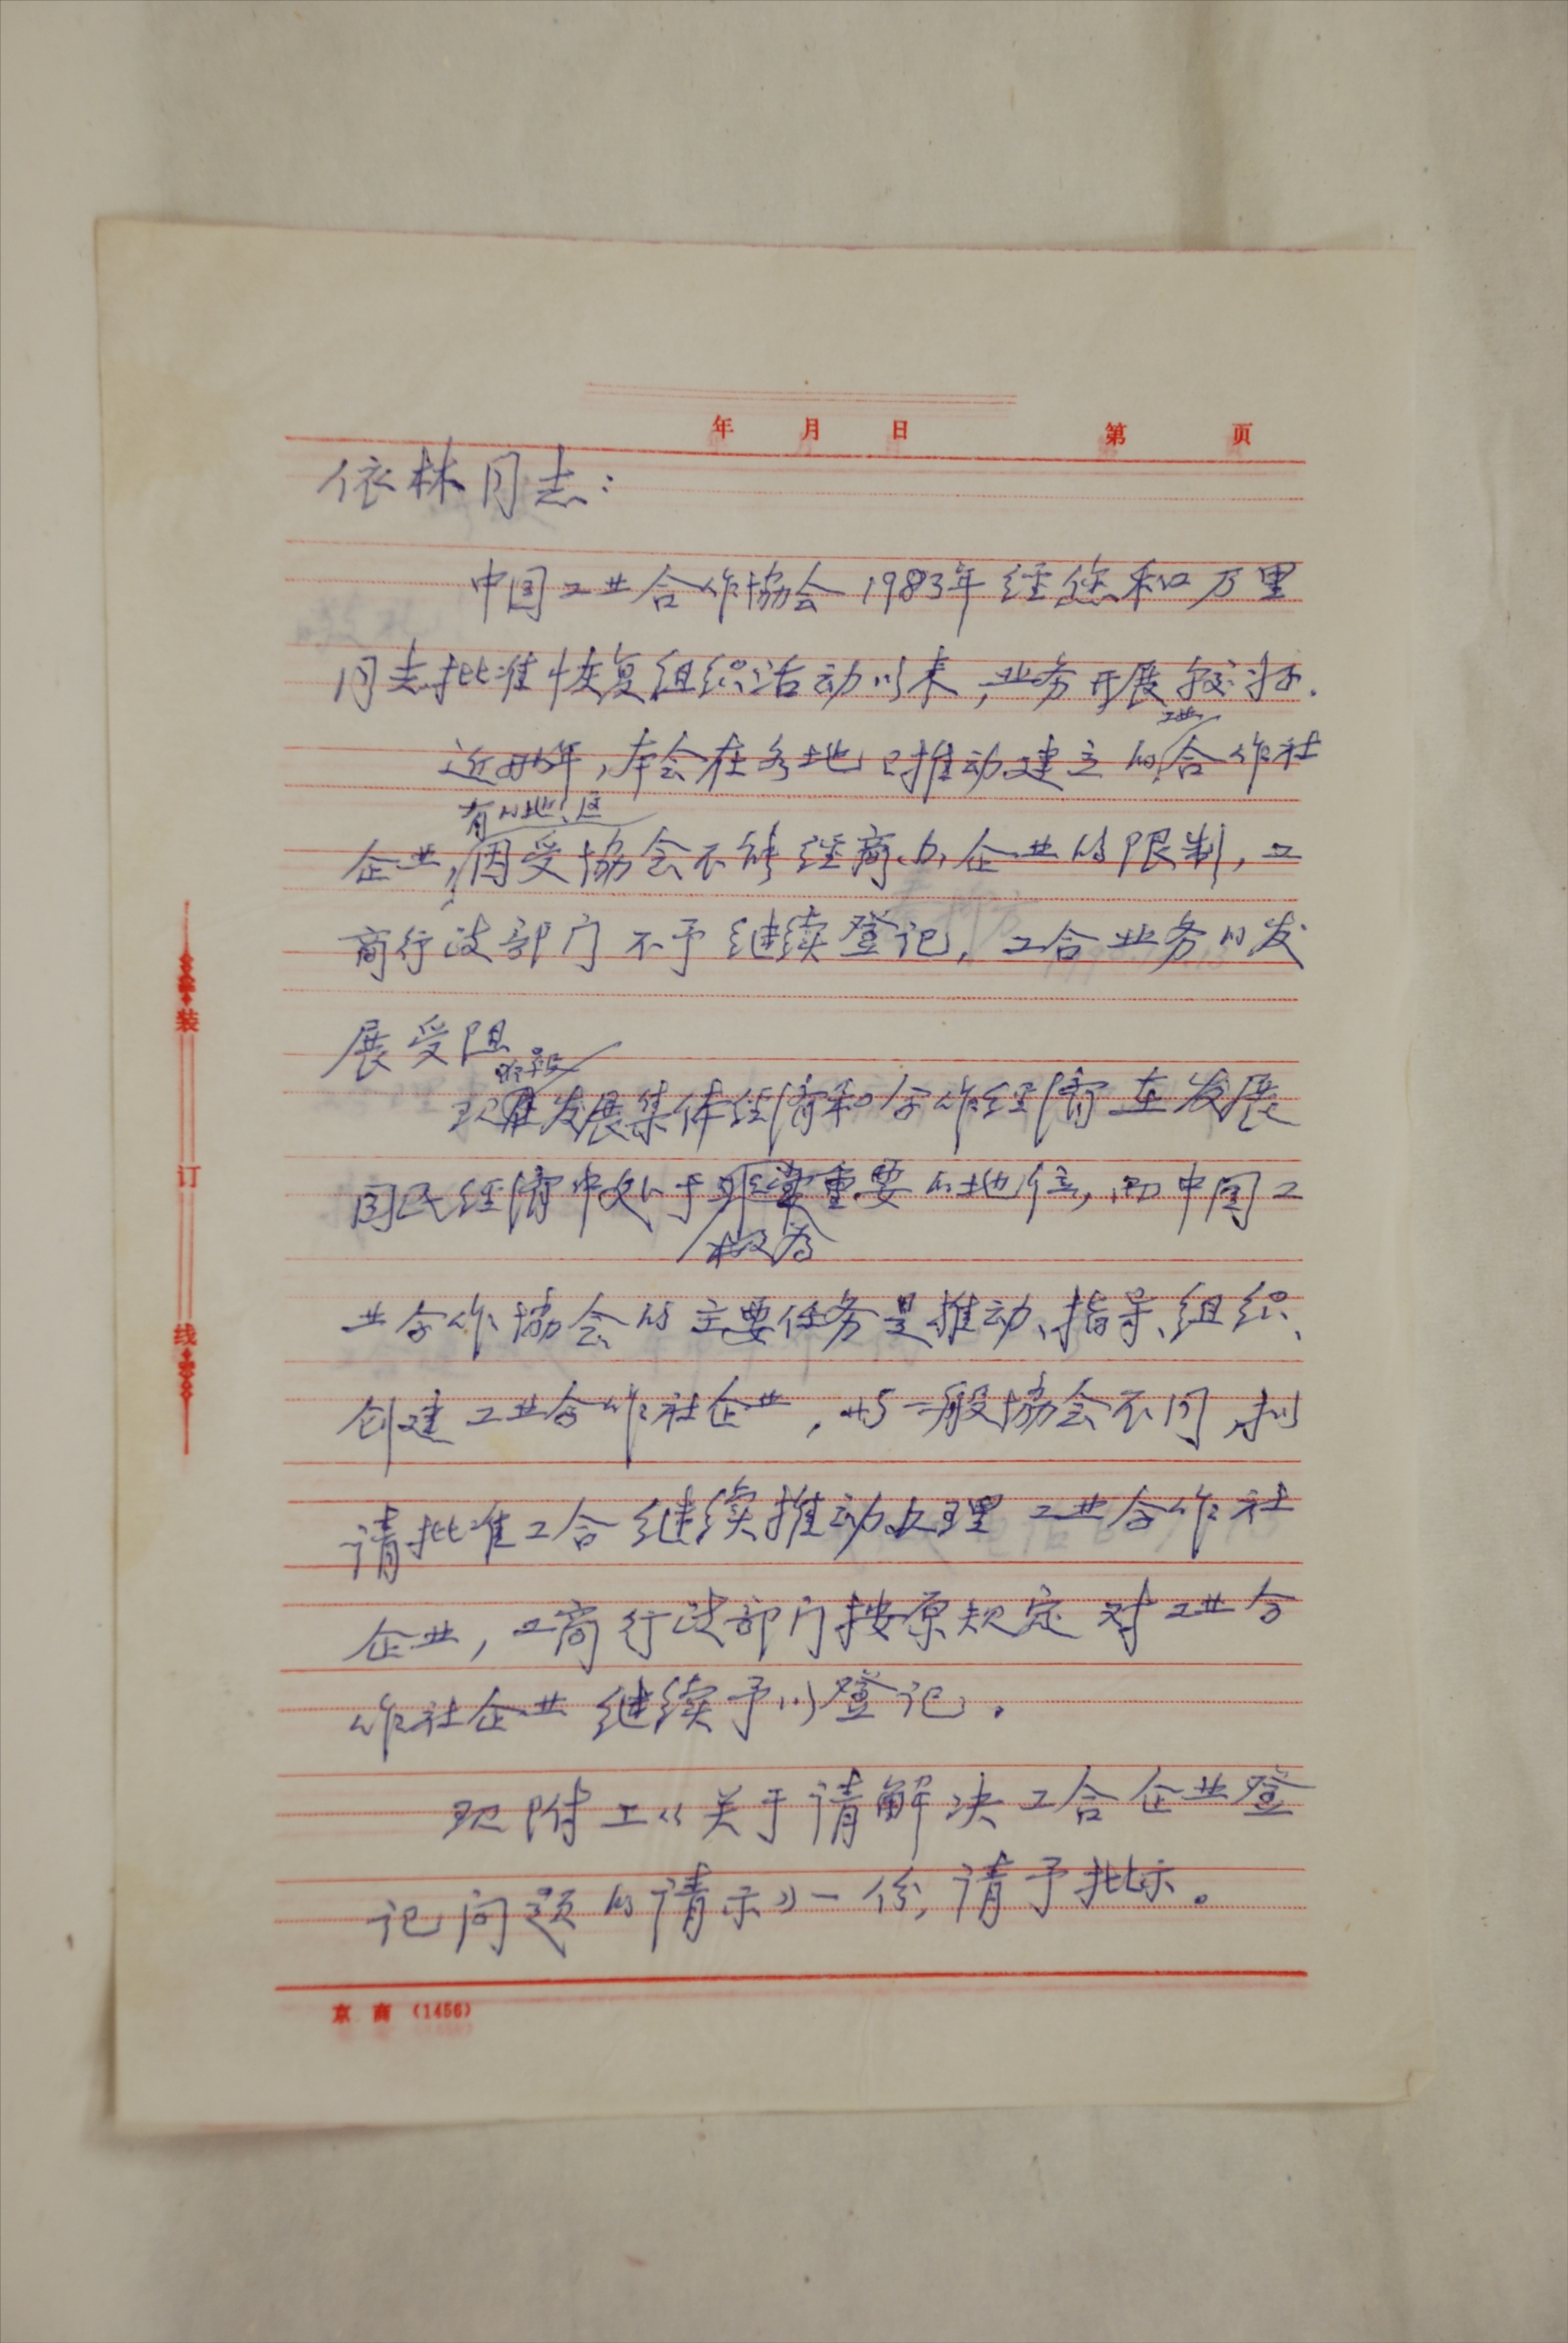 年 月 日 第 页
依林同志：
中国工业合作協会1983年经您和万里
同志批准恢复组织活动以来，业务开展较好.
工业
近两年，本会在各地已推动建立的合作社
有的地区
企业，因受協会不能经商办企业的限制，工
商行政部门不予继续登记，工合业务的发
展受阻
阶段
现发展集体经济和合作经济在发展
国民经济中处于非常重要的地位，而中国工
极为
业合作協会的主要任务是推动、指导、组织、
创建工业合作社企业，与一般協会不同，拟
请批准工合继续推动办理工业合作社
企业，工商行政部门按原规定对工业合
作社企业继续予以登记.
现附上《关于请解决工合企业登
记问题的请示》一份，请予批示。
装
订
线
京 商 (1456)